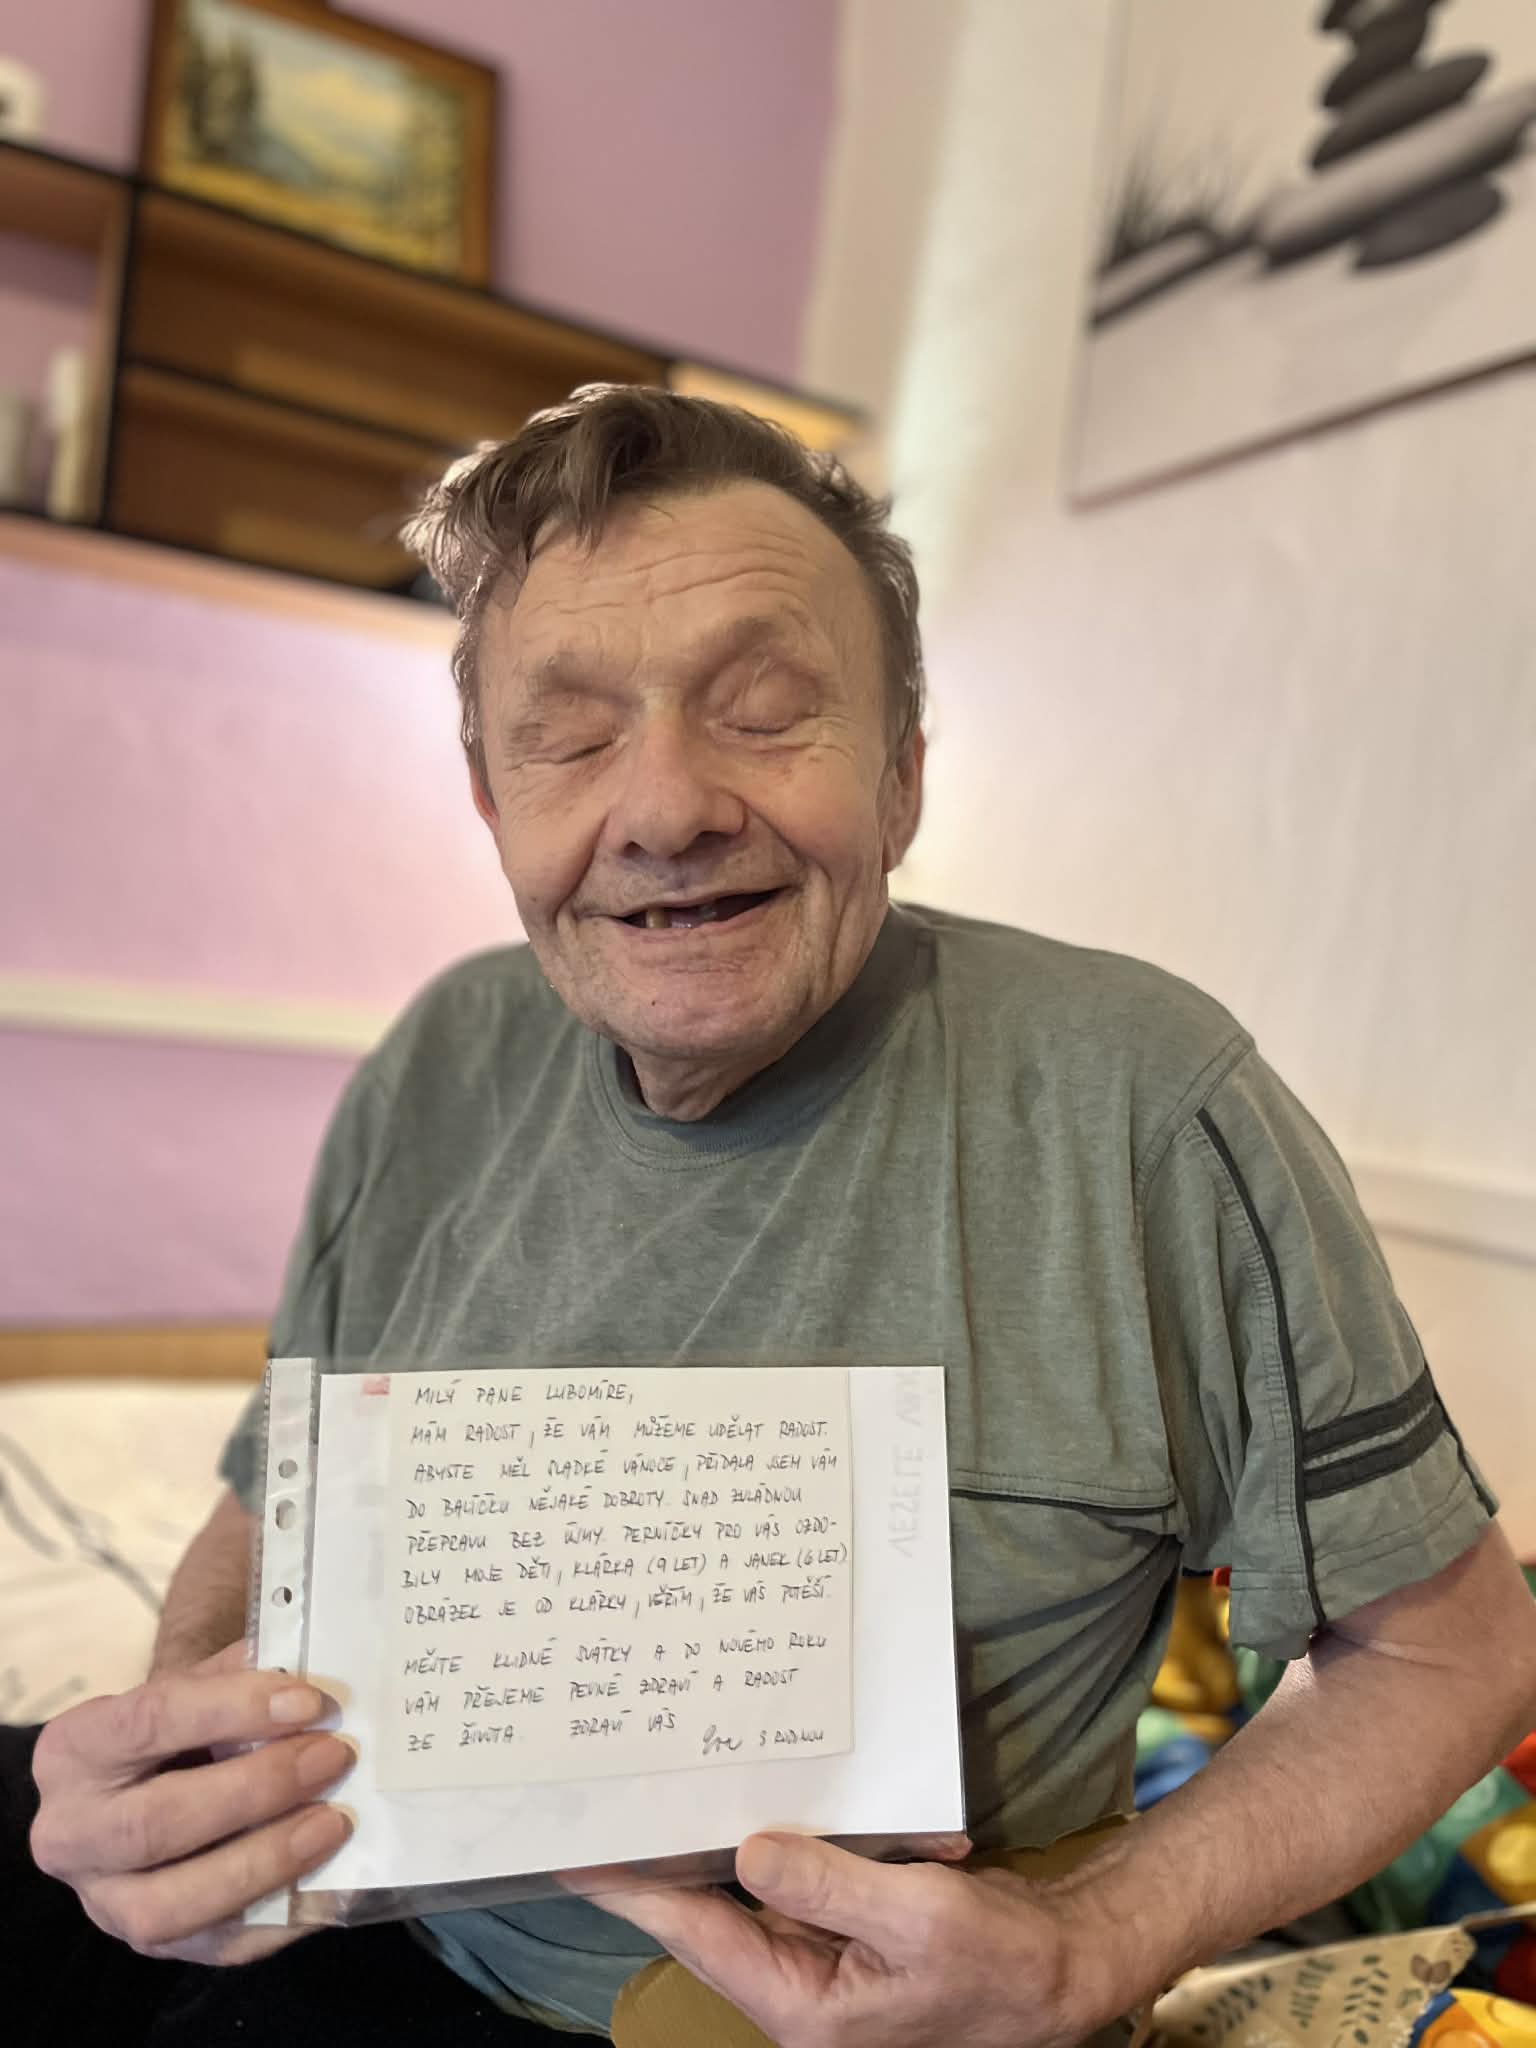 MILÝ PANE LUBOMÍRE,
MÁM RADOST, ŽE VÁM MŮŽEME UDĚLAT RADOST.
ABYSTE MĚL SLADKÉ VÁNOCE, PŘIDALA JSEM VÁM
DO BALÍČKU NĚJAKÉ DOBROTY. SNAD ZVLÁDNOU
PŘEPRAVU BEZ ÚJMY. PERNÍČKY PRO VÁS OZDO-
BILY MOJE DĚTI, KLÁRKA (9 LET) A JANEK (6 LET)
OBRÁZEK JE OD KLÁRKY, VĚŘÍM, ŽE VÁS POTĚŠÍ.
MĚJTE KLIDNÉ SVÁTKY A DO NOVÉHO ROKU
VÁM PŘEJEME PEVNÉ ZDRAVÍ A RADOST
ZE ŽIVOTA. ZDRAVÍ VÁS
Eva S RODINOU